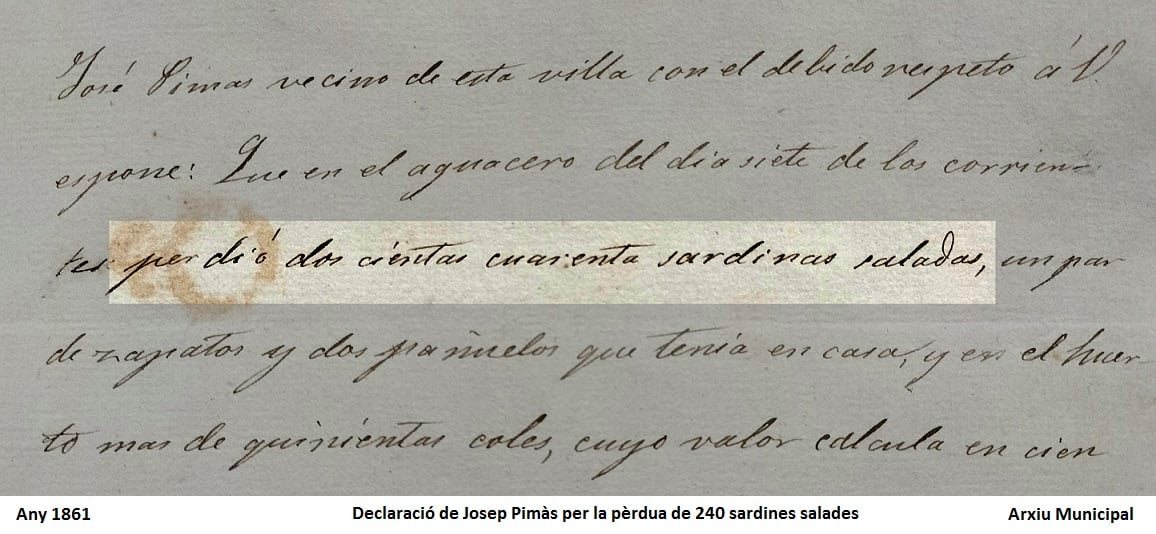 José Pimas vecino de esta villa con el debido respeto á V.
espone: Que en el aguacero del dia siete de los corrien-
tes perdió dos cientas cuarenta sardinas saladas, un par
de zapatos y dos pañuelos que tenia en casa, y en el huer-
to mas de quinientas coles, cuyo valor calcula en cien
Any 1861 Declaració de Josep Pimàs per la pèrdua de 240 sardines salades Arxiu Municipal